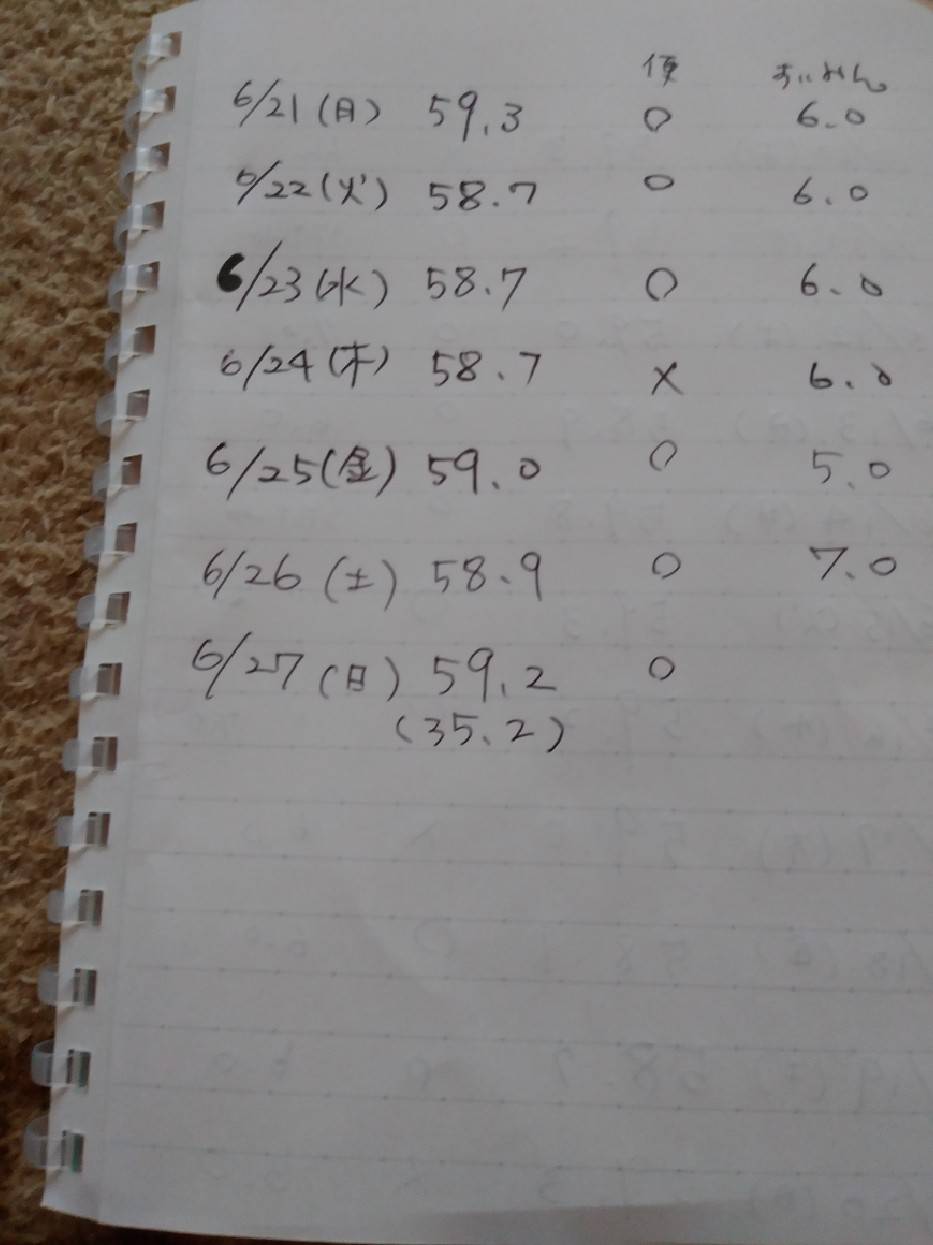 便 すいみん
6/21(日) 59.3 ○ 6.0
6/22(火) 58.7 ○ 6.0
6/23(水) 58.7 ○ 6.0
6/24(木) 58.7 × 6.0
6/25(金) 59.0 ○ 5.0
6/26(土) 58.9 ○ 7.0
6/27(日) 59.2 ○
(35.2)